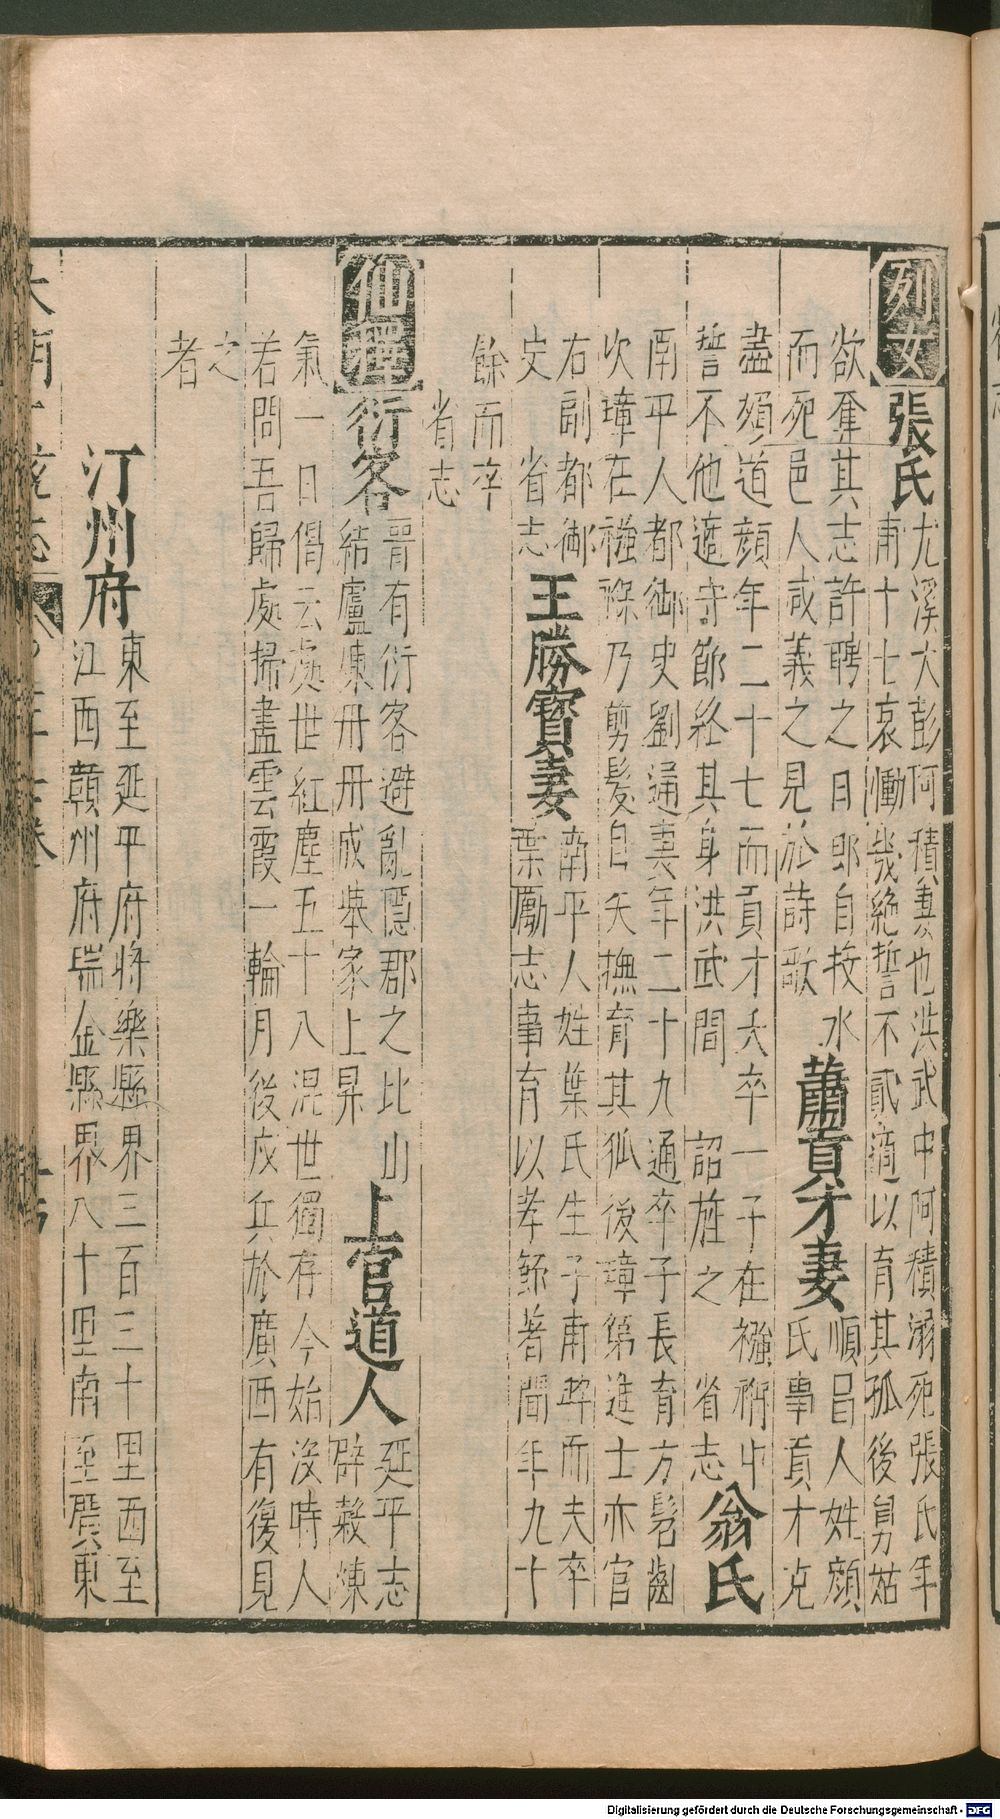 列女
張氏
尤溪大彭阿積妻也洪武中阿積溺死張氏年
甫十七哀慟幾絶誓不貳適以育其孤後舅姑
欲奪其志許聘之日即自投水
而死邑人咸義之見於詩歌
蕭貢才妻
順昌人姓顏
氏事貢才克
盡婦道顏年二十七而貢才夭卒一子在襁褓中
誓不他適守節終其身洪武間 詔旌之 省志
翁氏
南平人都御史劉通妻年二十九通卒子長育方髫齔
次璋在襁褓乃剪髮自矢撫育其孤後璋第進士亦官
右副都御
史 省志
王勝寶妻
南平人姓葉氏生子甫晬而夫卒
葉勵志事育以孝節著聞年九十
餘而卒
省志
仙釋
衍客
晋有衍客避亂隱郡之比山
結廬煉丹丹成舉家上昇
上官道人
延平志
辟穀煉
氣一日偈云處世紅塵五十八混世獨存今始沒時人
若問吾歸處掃盡雲霞一輪月後戍兵於廣西有復見
之
者
汀州府
東至延平府將樂縣界三百三十里西至
江西贛州府瑞金縣界八十里南至廣東
Digitalisierung gefördert durch die Deutsche Forschungsgemeinschaft - DFG